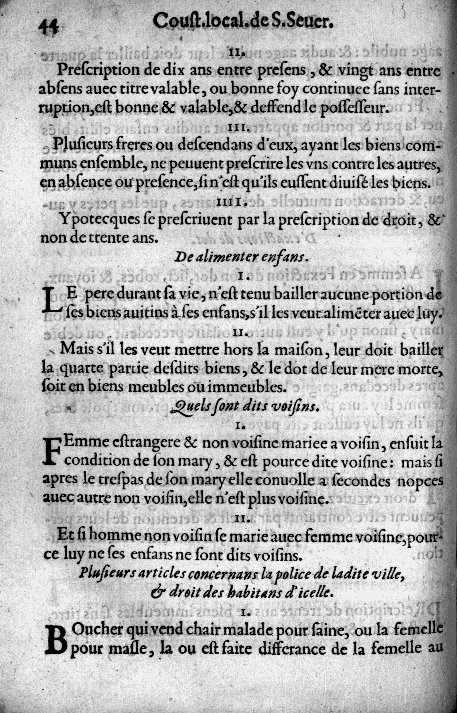 44 Couſt.local.de S.Seuer.
II.
Preſcription de dix ans entre preſens, & vingt ans entre
abſens auec titre valable, ou bonne foy continuee ſans inter-
ruption,eſt bonne & valable,& deffend le poſſeſſeur.
III.
Pluſieurs freres ou deſcendans d'eux, ayant les biens com-
muns enſemble, ne peuuent preſcrire les vns contre les autres,
en abſence ou preſence,ſi n'eſt qu'ils euſſent diuiſé les biens.
IIII.
Ypotecques ſe preſcriuent par la preſcription de droit, &
non de trente ans.
De alimenter enfans.
I.
LE pere durant ſa vie, n'eſt tenu bailler aucune portion de
ſes biens auitins à ſes enfans,s'il les veut alimẽter auec luy.
II.
Mais s'il les veut mettre hors la maiſon, leur doit bailler
la quarte partie deſdits biens, & le dot de leur mere morte,
ſoit en biens meubles ou immeubles.
Quels ſont dits voiſins.
I.
FEmme eſtrangere & non voiſine mariee a voiſin, enſuit la
condition de ſon mary, & eſt pource dite voiſine: mais ſi
apres le treſpas de ſon mary elle conuolle a ſecondes nopces
auec autre non voiſin,elle n'eſt plus voiſine.
II.
Et ſi homme non voiſin ſe marie auec femme voiſine,pour-
ce luy ne ſes enfans ne ſont dits voiſins.
Pluſieurs articles concernans la police de ladite ville,
& droit des habitans d'icelle.
I.
BOucher qui vend chair malade pour ſaine, ou la femelle
pour maſle, la ou eſt faite differance de la femelle au